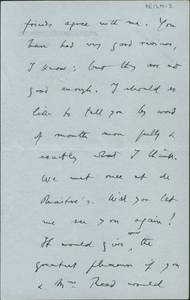 friends agree with me. You
have had very good reviews,
I know; but they are not
good enough. I should so
like to tell you by word
of mouth more fully &
exactly what I think.
We met once at de
Will you let
me see you again?
It would give, the
greatest pleasure if you
& Mrs Read would